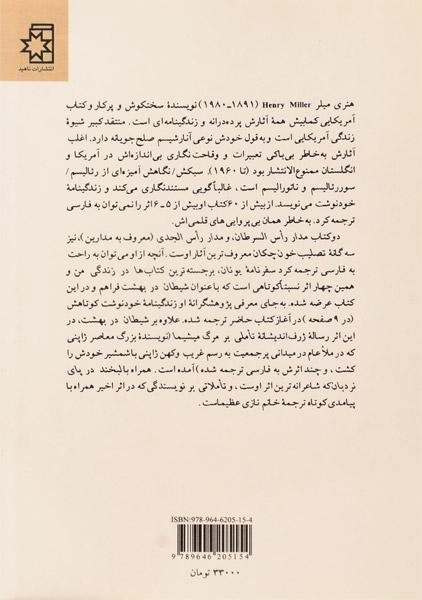 انتشارات ناهید
هنری میلر Henry Miller (۱۸۹۱ـ۱۹۸۰) نویسندهٔ سختکوش و پرکار و کتاب
آمریکایی کمابیش همهٔ آثارش پرده‌درانه و زندگینامه‌ای است. منتقد کبیر شیوهٔ
زندگی آمریکایی است و به قول خودش نوعی آنارشیسم صلح‌جویانه دارد. اغلب
آثارش به خاطر بی‌باکی تعبیرات و وقاحت‌نگاری بی‌اندازه‌اش در آمریکا و
انگلستان ممنوع‌الانتشار بود (تا ۱۹۶۰). سبکش/نگاهش آمیزه‌ای از رئالیسم/
سوررئالیسم و ناتورالیسم است، غالباً گویی مستندنگاری می‌کند و زندگینامهٔ
خودنوشت می‌نویسد. از بیش از ۶۰ کتاب او بیش از ۵ـ۶ اثر را نمی‌توان به فارسی
ترجمه کرد. به خاطر همان بی‌پروایی‌های قلمی‌اش.
دو کتاب مدار رأس السرطان، و مدار رأس الجدی (معروف به مدارین)، نیز
سه گانهٔ تصلیب خون‌چکان معروف‌ترین آثار اوست. آنچه از او می‌توان به راحت
به فارسی ترجمه کرد سفرنامهٔ یونان، برجسته‌ترین کتاب‌ها در زندگی من و
همین چهار اثر نسبتاً کوتاهی است که با عنوان شیطان در بهشت فراهم و در این
کتاب عرضه شده. به جای معرفی پژوهشگرانهٔ او زندگینامهٔ خودنوشت کوتاهش
(در ۹ صفحه) در آغاز کتاب حاضر ترجمه شده. علاوه بر شیطان در بهشت، در
این اثر رسالهٔ ژرف‌اندیشانهٔ تأملی بر مرگ میشیما (نویسندهٔ بزرگ معاصر ژاپنی
که در ملأعام در میدانی پرجمعیت به رسم غریب و کهن ژاپنی با شمشیر خودش را
کشت، و چند اثرش به فارسی ترجمه شده) آمده است. همراه با لبخند در پای
نردبان که شاعرانه‌ترین اثر اوست، و تأملاتی بر نویسندگی که در اثر اخیر همراه با
پیامدی کوتاه ترجمهٔ خانم نازی عظیماست.
ISBN: 978-964-6205-15-4
9 789646 205154
۳۳۰۰۰ تومان